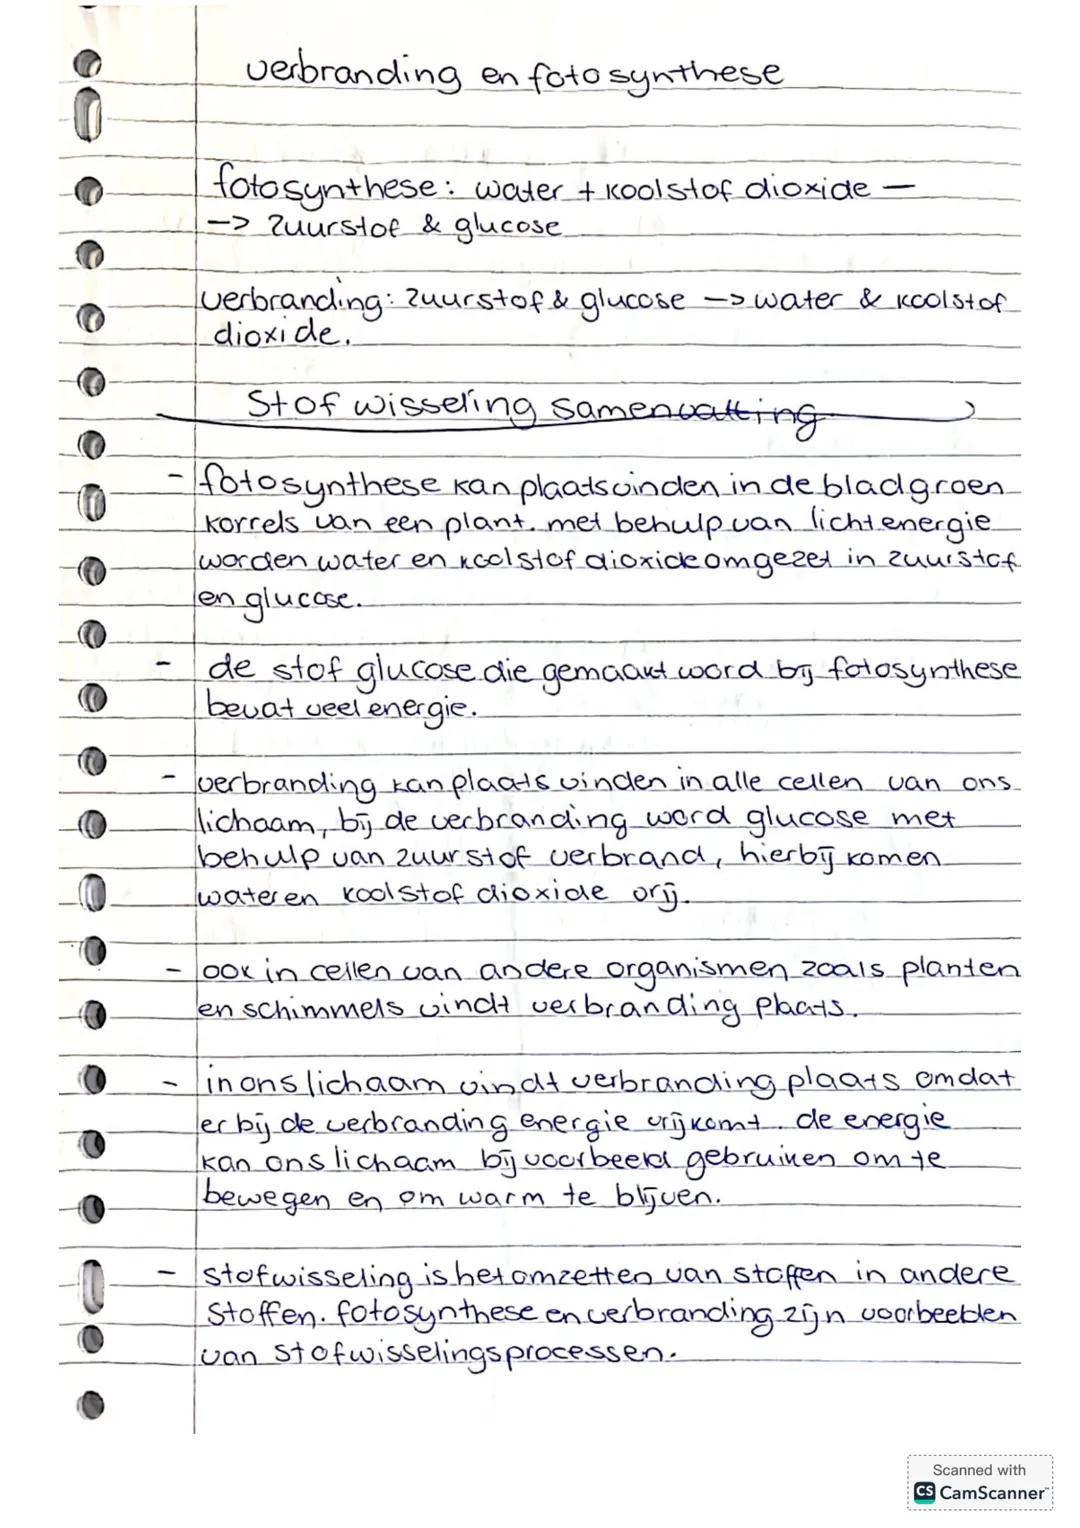 verbranding en fotosynthese
fotosynthese: water + koolstof dioxide —
—> zuurstof & glucose
verbranding: zuurstof & glucose —> water & koolstof
dioxide.
Stof wisseling samenvatting
- fotosynthese kan plaatsvinden in de bladgroen
korrels van een plant. met behulp van lichtenergie
worden water en koolstof dioxide omgezet in zuurstof
en glucose.
- de stof glucose die gemaakt word bij fotosynthese
bevat veel energie.
- verbranding kan plaats vinden in alle cellen van ons
lichaam, bij de verbranding word glucose met
behulp van zuurstof verbrand, hierbij komen
water en koolstof dioxide vrij.
- ook in cellen van andere organismen zoals planten
en schimmels vindt verbranding plaats.
- in ons lichaam vindt verbranding plaats omdat
er bij de verbranding energie vrijkomt. de energie
kan ons lichaam bijvoorbeeld gebruiken om te
bewegen en om warm te blijven.
- stofwisseling is het omzetten van stoffen in andere
stoffen. fotosynthese en verbranding zijn voorbeelden
van stofwisselingsprocessen.
Scanned with
CS CamScanner